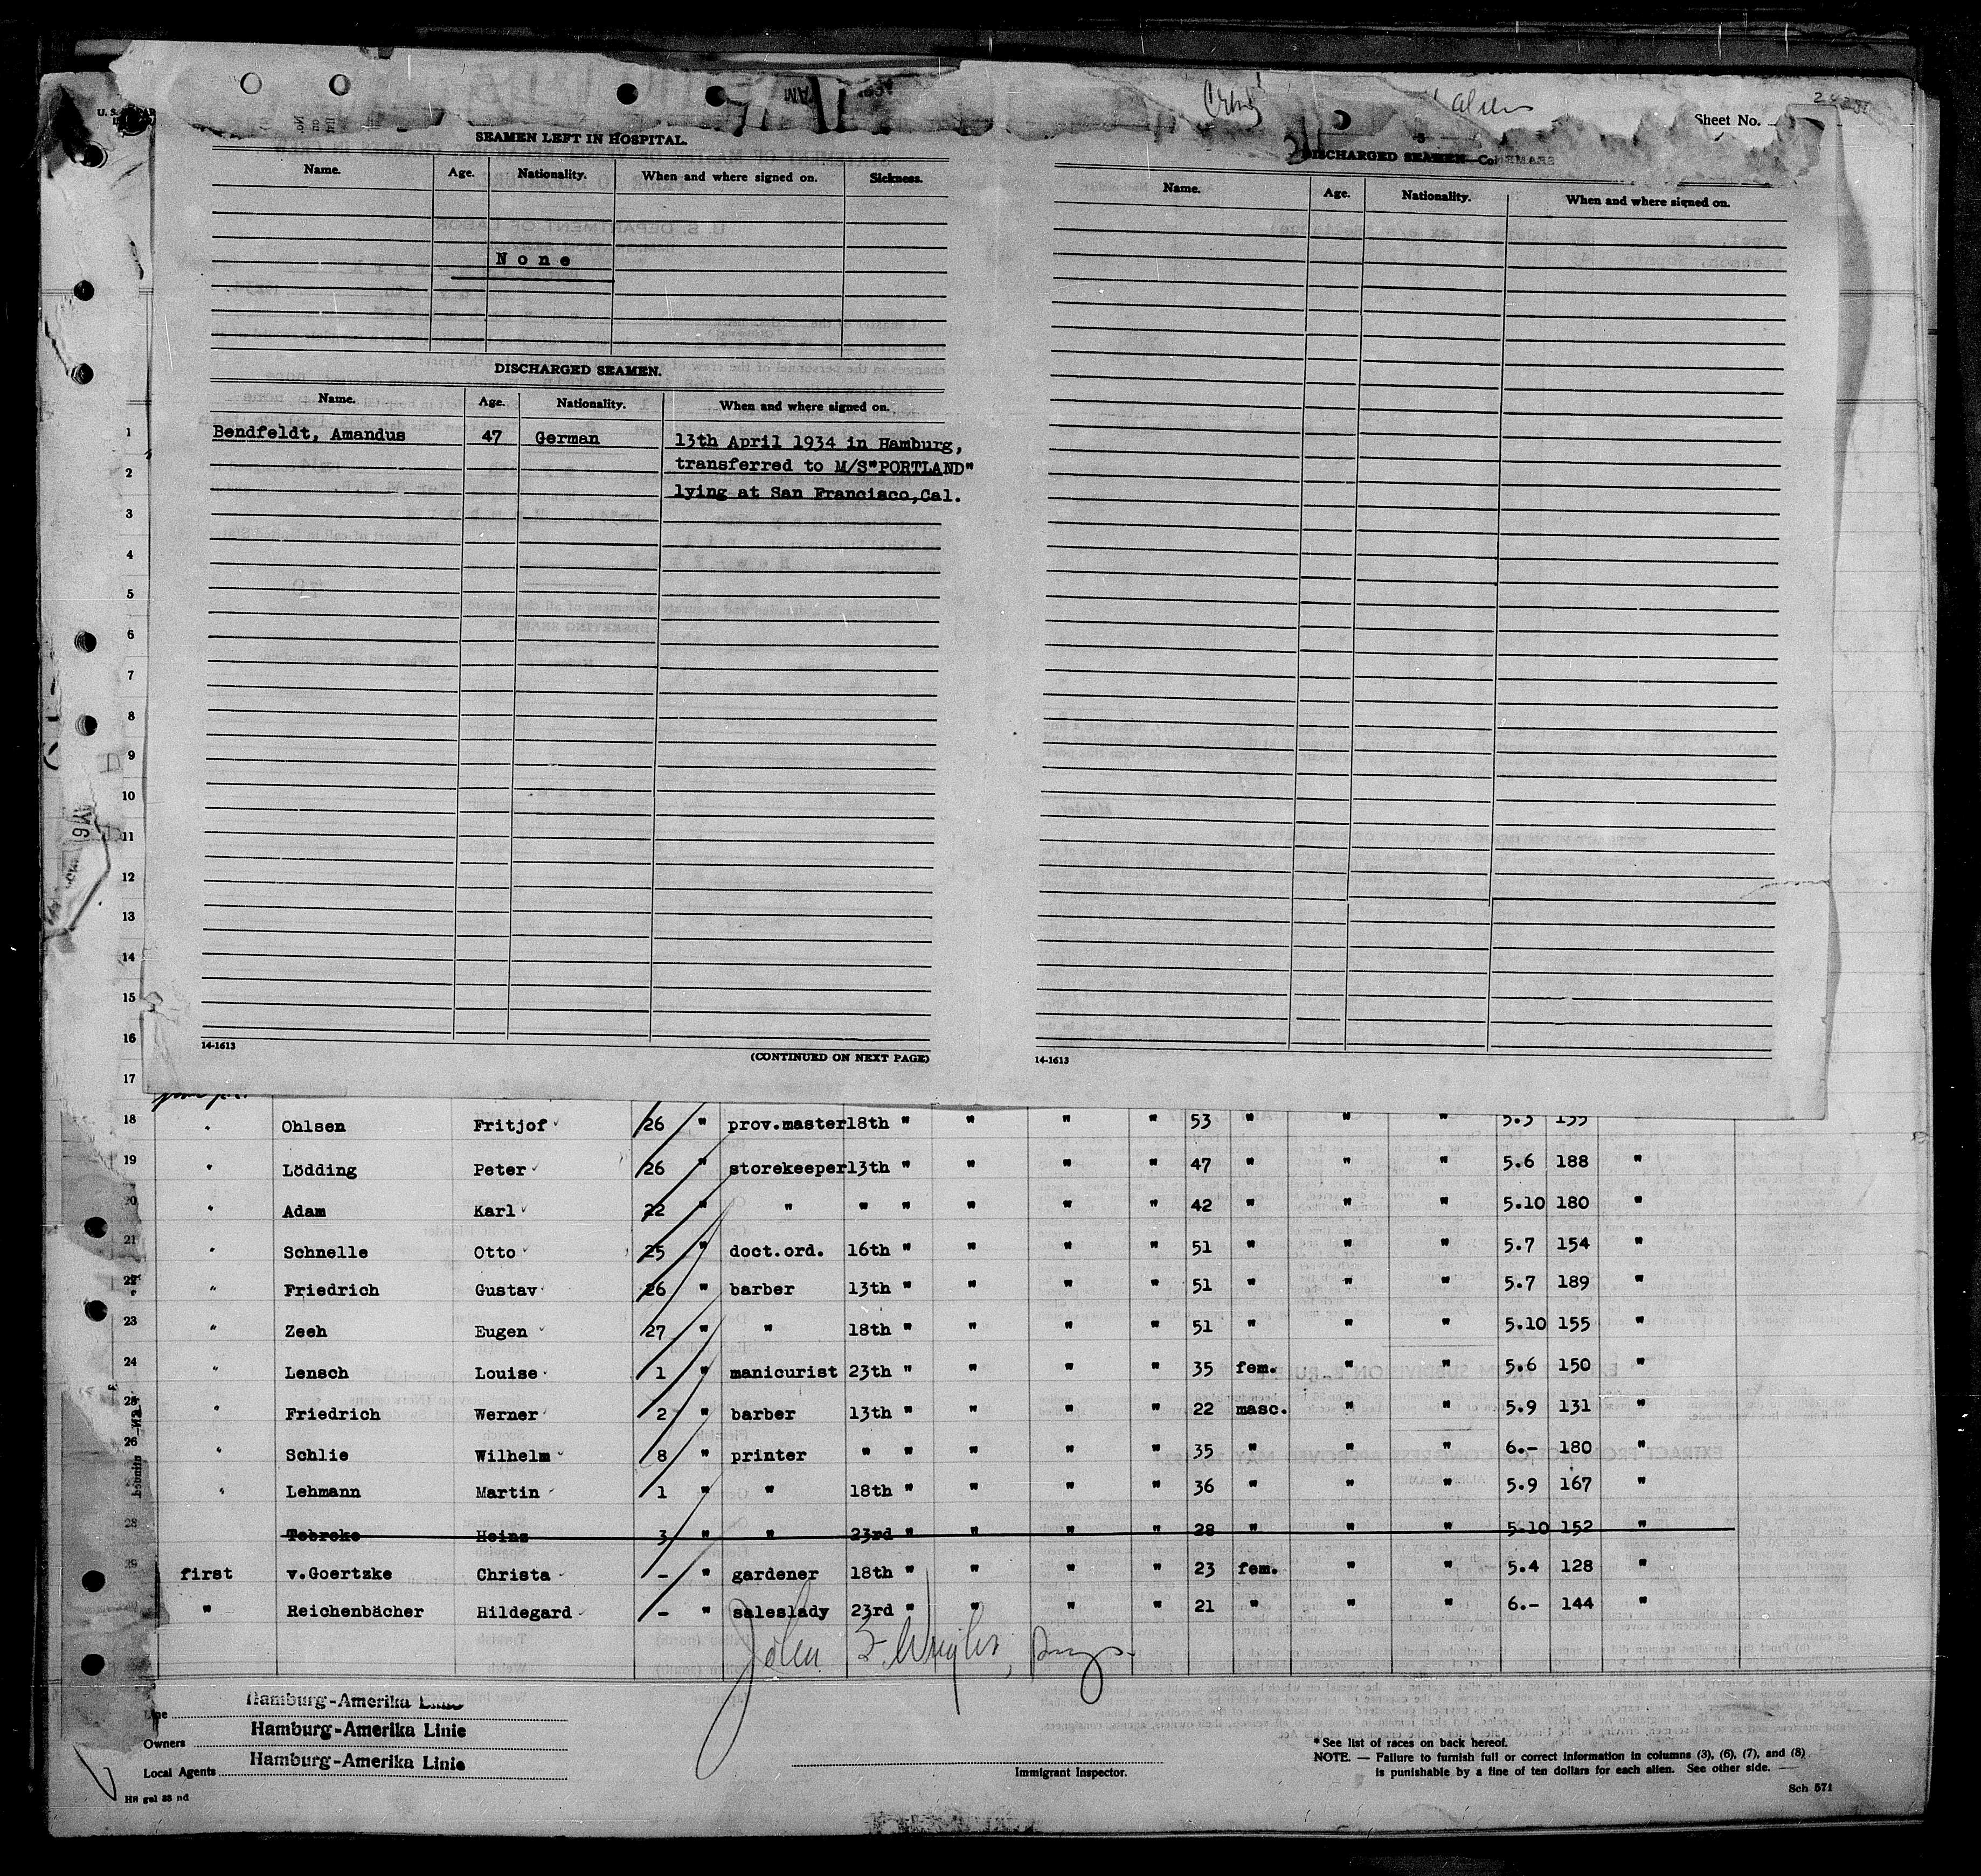 Sheet No.
SEAMEN LEFT IN HOSPITAL.
Name. Age. Nationality. When and where signed on. Sickness.
None
DISCHARGED SEAMEN.
Name. Age. Nationality. When and where signed on.
Bendfeldt, Amandus 47 German 13th April 1934 in Hamburg,
transferred to M/S"PORTLAND"
lying at San Francisco,Cal.
14-1613
(CONTINUED ON NEXT PAGE)
DISCHARGED SEAMEN
Name. Age. Nationality. When and where signed on.
14-1613
1
2
3
4
5
6
7
8
9
10
11
12
13
14
15
16
17
18 " Ohlsen Fritjof 26 " prov.master 18th " " " " 53 " " " 5.5 155
19 " Lödding Peter 26 " storekeeper 13th " " " " 47 " " " 5.6 188 "
20 " Adam Karl 22 " " " " " " " 42 " " " 5.10 180 "
21 " Schnelle Otto 25 " doct.ord. 16th " " " " 51 " " " 5.7 154 "
22 " Friedrich Gustav 26 " barber 13th " " " " 51 " " " 5.7 189 "
23 " Zeeh Eugen 27 " " 18th " " " " 51 " " " 5.10 155 "
24 " Lensch Louise 1 " manicurist 23th " " " " 35 fem. " " 5.6 150 "
25 " Friedrich Werner 2 " barber 13th " " " " 22 masc. " " 5.9 131 "
26 " Schlie Wilhelm 8 " printer " " " " " 35 " " " 6.- 180 "
" Lehmann Martin 1 " " 18th " " " " 36 " " " 5.9 167 "
28 Tebroke Heinz 3 " " 23rd " " " " 28 " " " 5.10 152 "
29 first v.Goertzke Christa - " gardener 18th " " " " 23 fem. " " 5.4 128 "
" Reichenbächer Hildegard - " saleslady 23rd " " " " 21 " " " 6.- 144 "
John
Line Hamburg-Amerika Linie
Owners Hamburg-Amerika Linie
Local Agents Hamburg-Amerika Linie
Immigrant Inspector.
* See list of races on back hereof.
NOTE. — Failure to furnish full or correct information in columns (3), (6), (7), and (8)
is punishable by a fine of ten dollars for each alien. See other side.
Sch 571